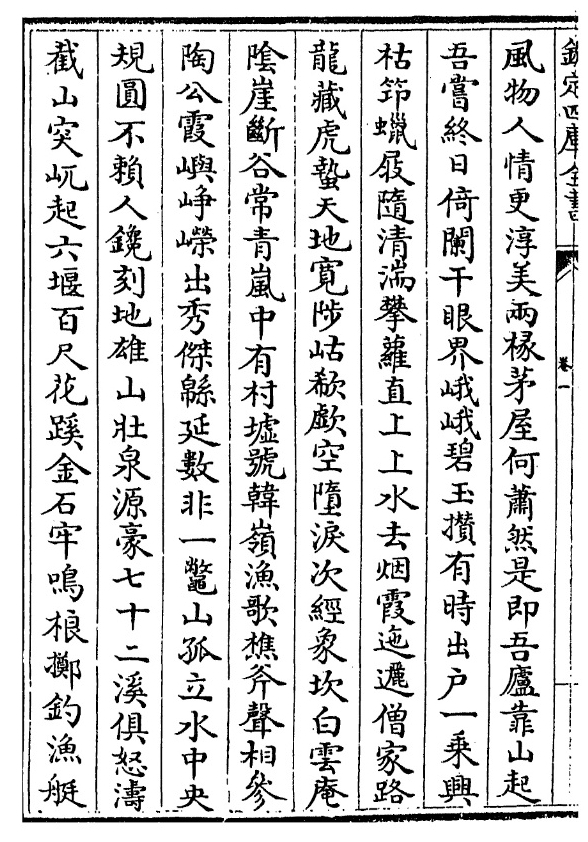 欽定四庫全書
卷一
風物人情更淳美兩椽茅屋何蕭然是即吾廬靠山起
吾嘗終日倚闌干眼界峨峨碧玉攢有時出户一乗興
枯筇蠟屐隨清湍攀蘿直上上水去烟霞迤邐僧家路
龍藏虎蟄天地寛陟岵欷歔空墮淚次經象坎白雲庵
陰崖斷谷常青嵐中有村墟號韓嶺漁歌樵斧聲相參
陶公霞嶼崢嶸出秀傑緜延數非一鼈山孤立水中央
規圓不賴人鑱刻地雄山壯泉源豪七十二溪俱怒濤
截山突屼起六堰百尺花蹊金石牢鳴桹擲釣漁艇